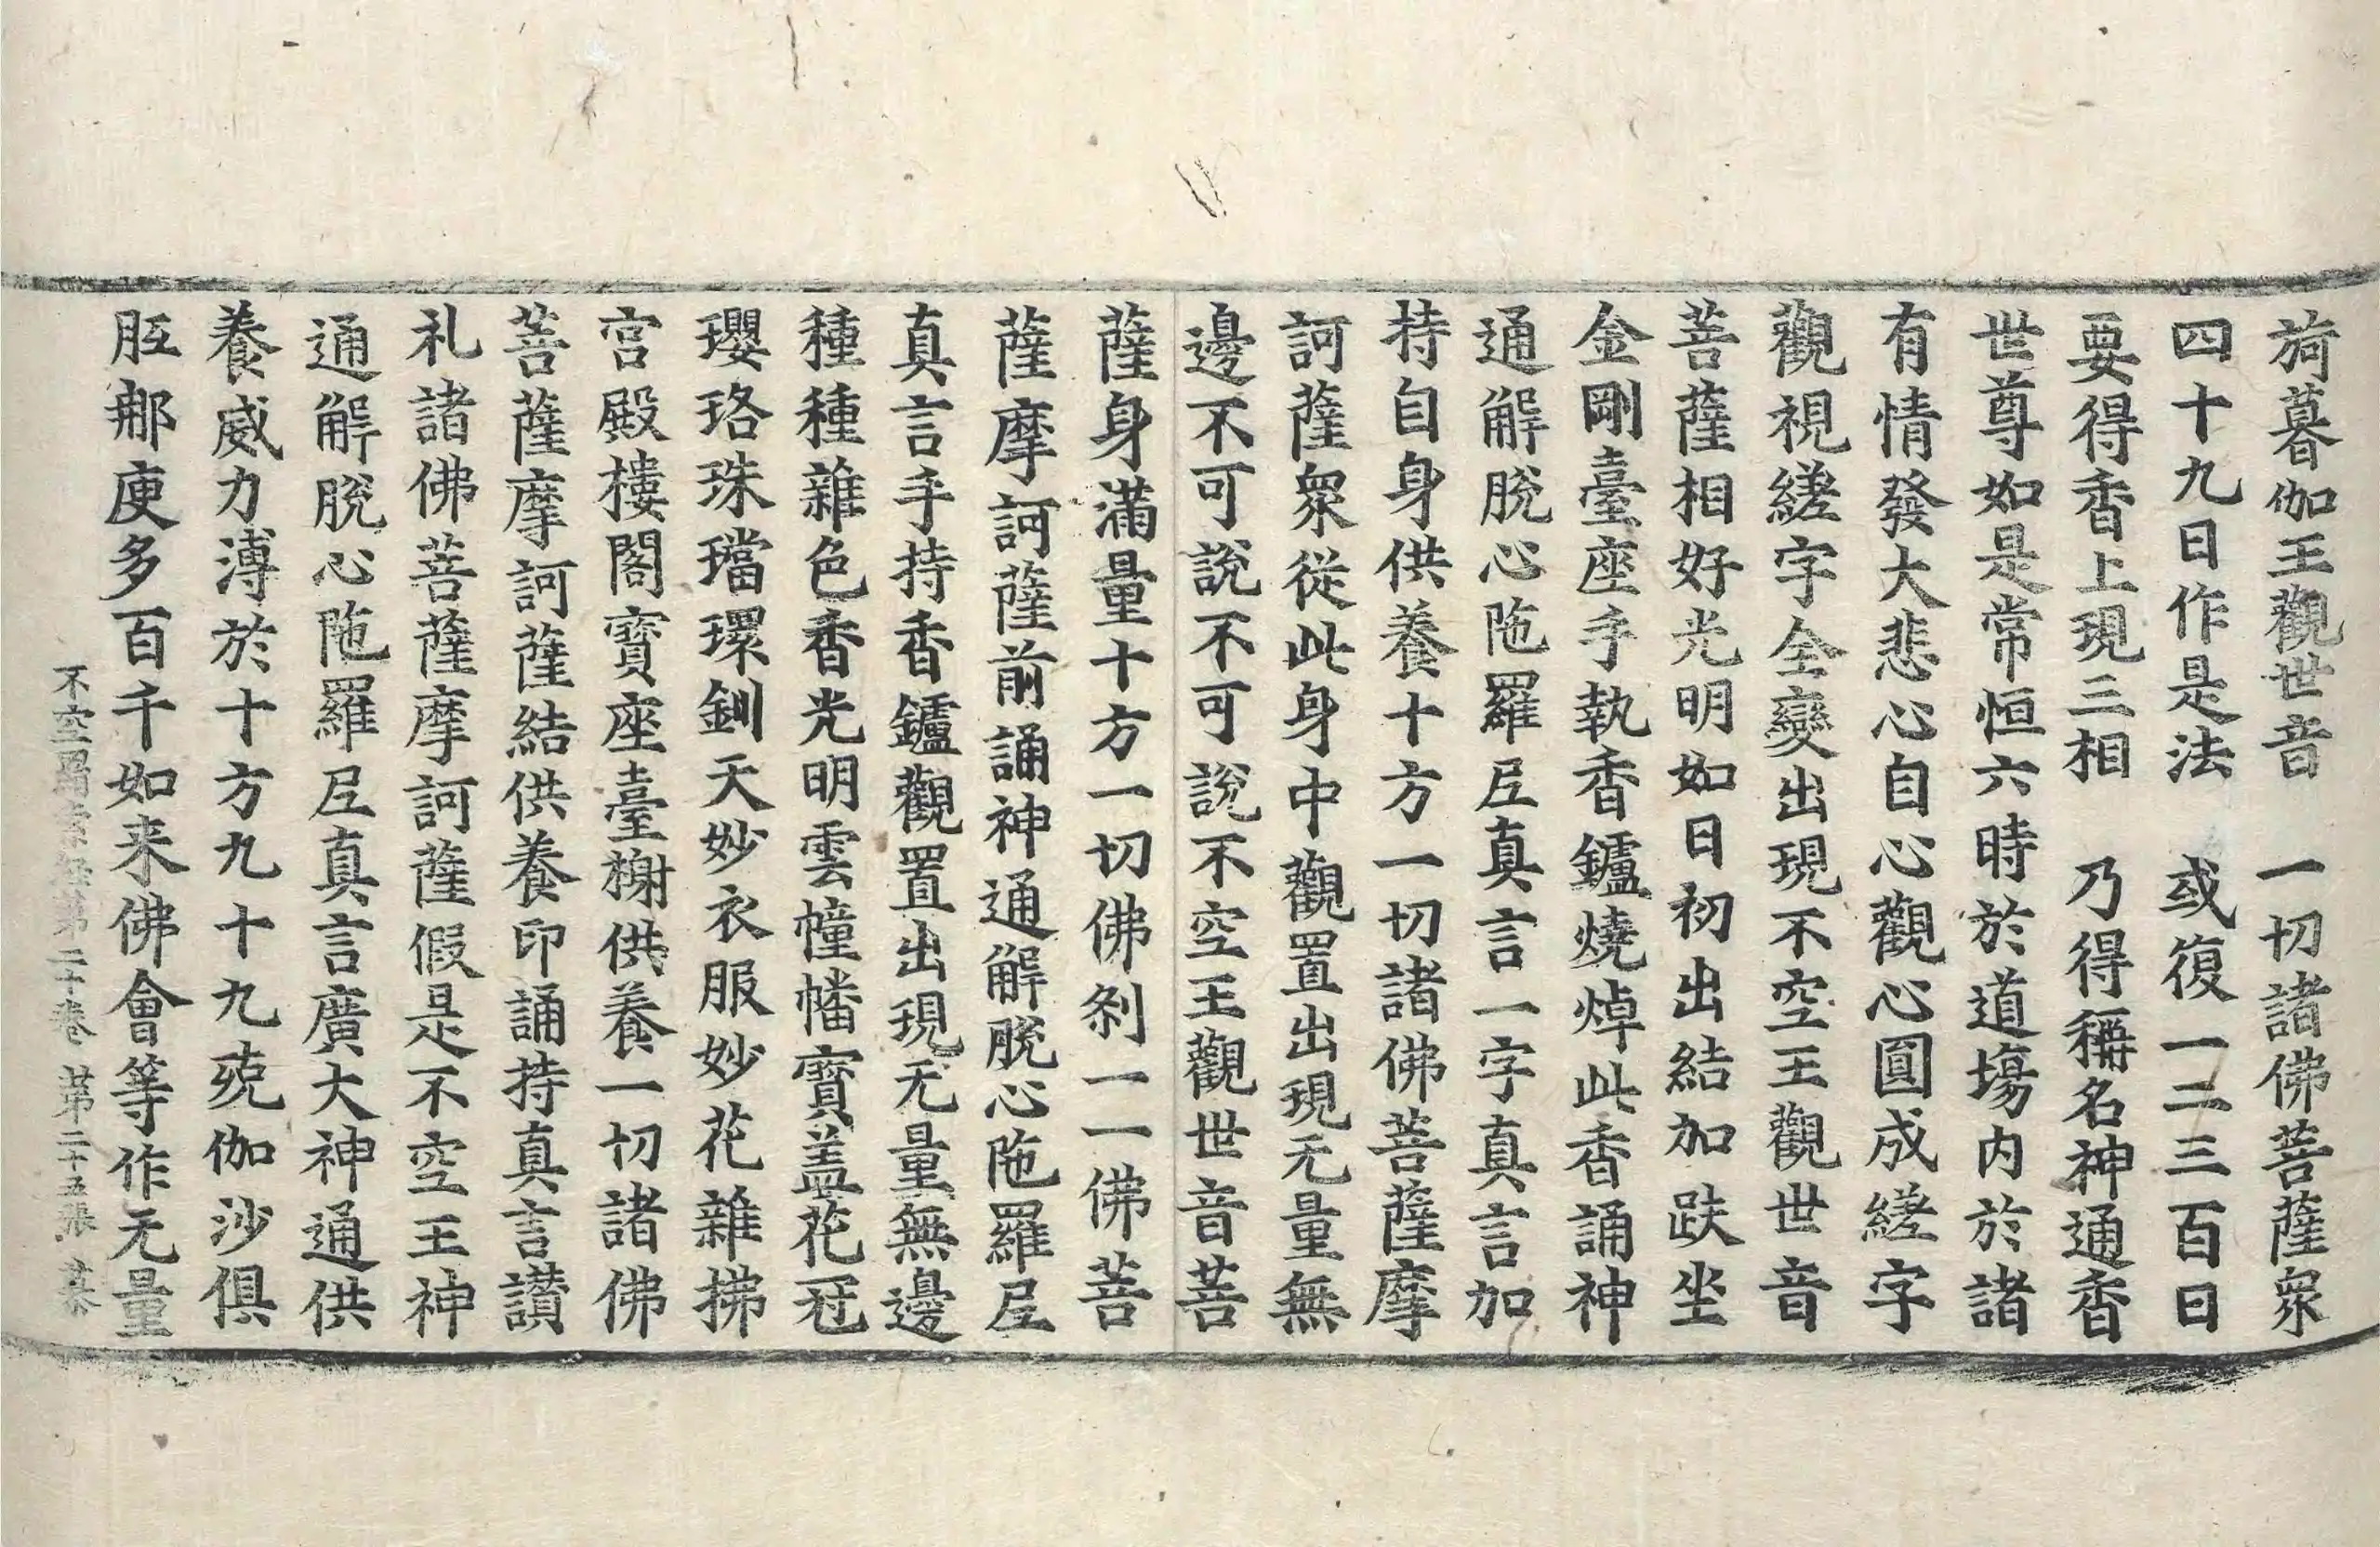 旖暮伽王觀世音　一切諸佛菩薩衆
四十九日作是法　或復一二三百日
要得香上現三相　乃得稱名神通香
世尊如是常恒六時於道場内於諸
有情發大悲心自心觀心圓成縒字
觀視縒字全變出現不空王觀世音
菩薩相好光明如日初出結加趺坐
金剛臺座手執香鑪燒焯此香誦神
通解脫心陁羅𡰱真言一字真言加
持自身供養十方一切諸佛菩薩摩
訶薩衆從此身中觀置出現无量無
邊不可說不可說不空王觀世音菩
薩身滿量十方一切佛刹一一佛菩
薩摩訶薩前誦神通解脫心陁羅𡰱
真言手持香鑪觀置出現无量無邊
種種雜色香光明雲幢幡寶盖花冠
瓔珞珠璫環釧天妙衣服妙花雜拂
宮殿樓閣寶座臺榭供養一切諸佛
菩薩摩訶薩結供養印誦持真言讃
礼諸佛菩薩摩訶薩假是不空王神
通解脫心陁羅𡰱真言廣大神通供
養威力溥於十方九十九殑伽沙俱
胝那庾多百千如来佛會等作无量
不空羂索經第二十卷　第二十五張　慕